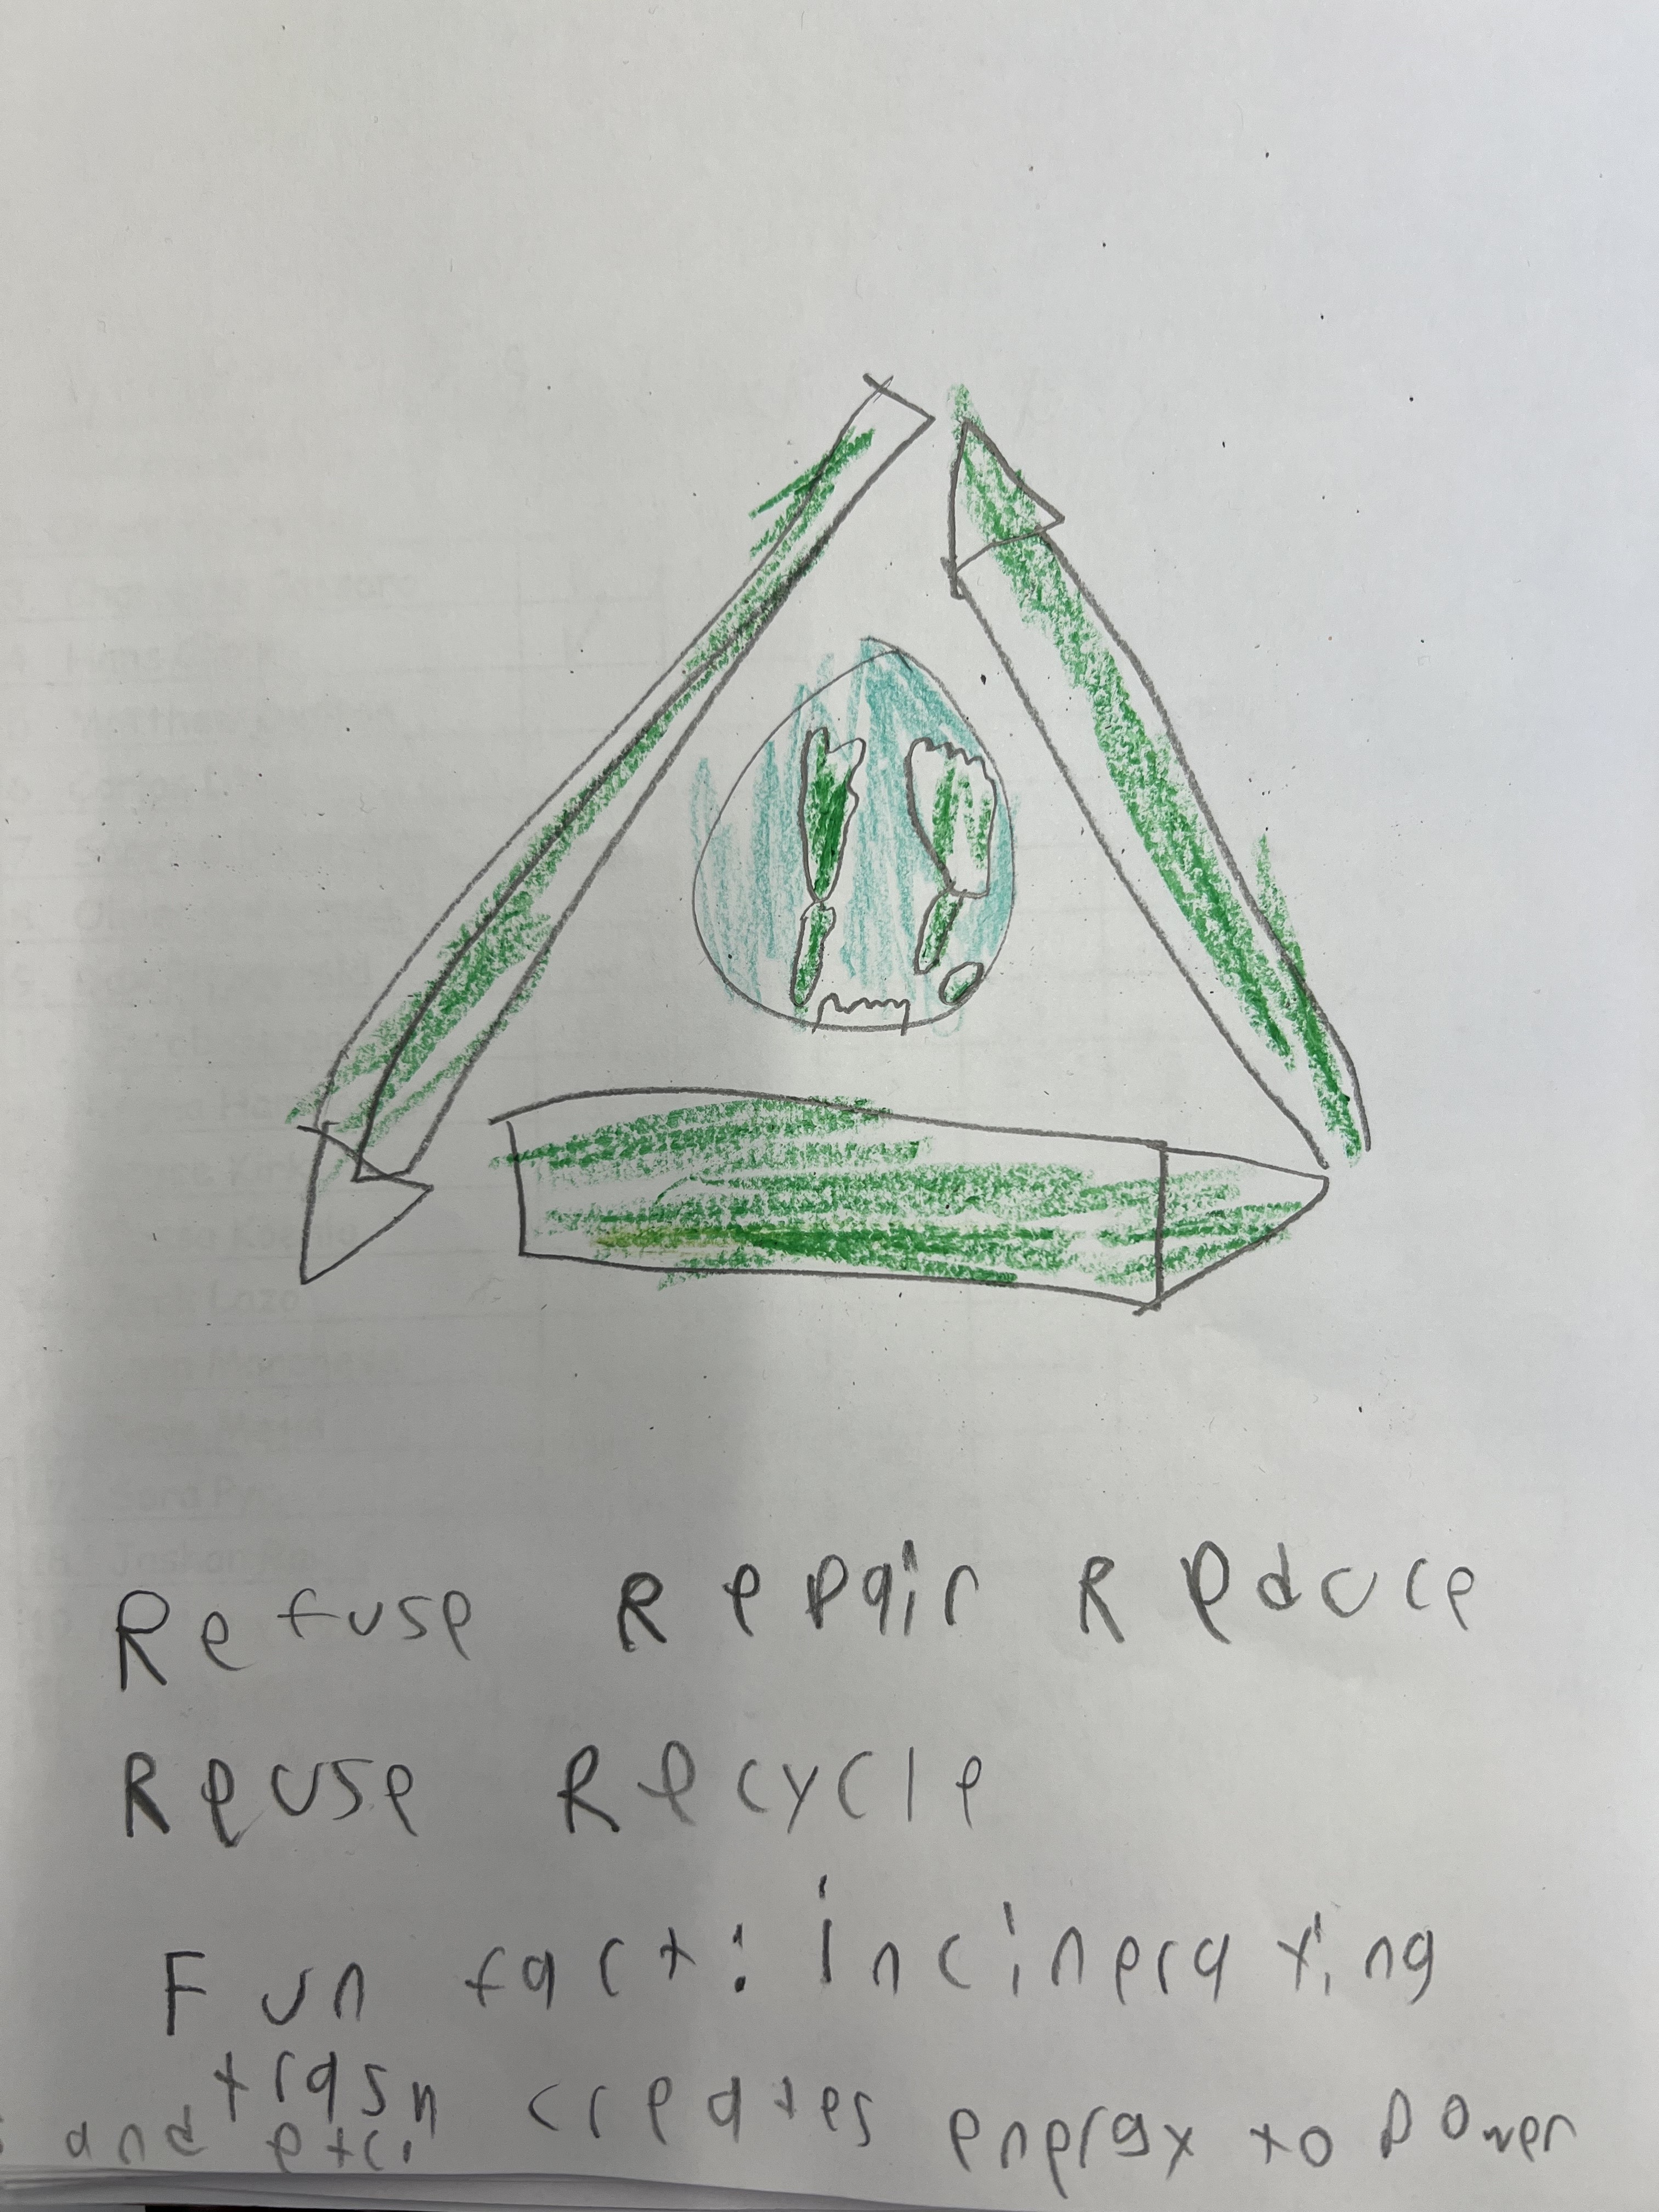 Refuse Repair Reduce
Reuse Recycle
Fun fact: incinerating
trash creates energy to power
and etc.